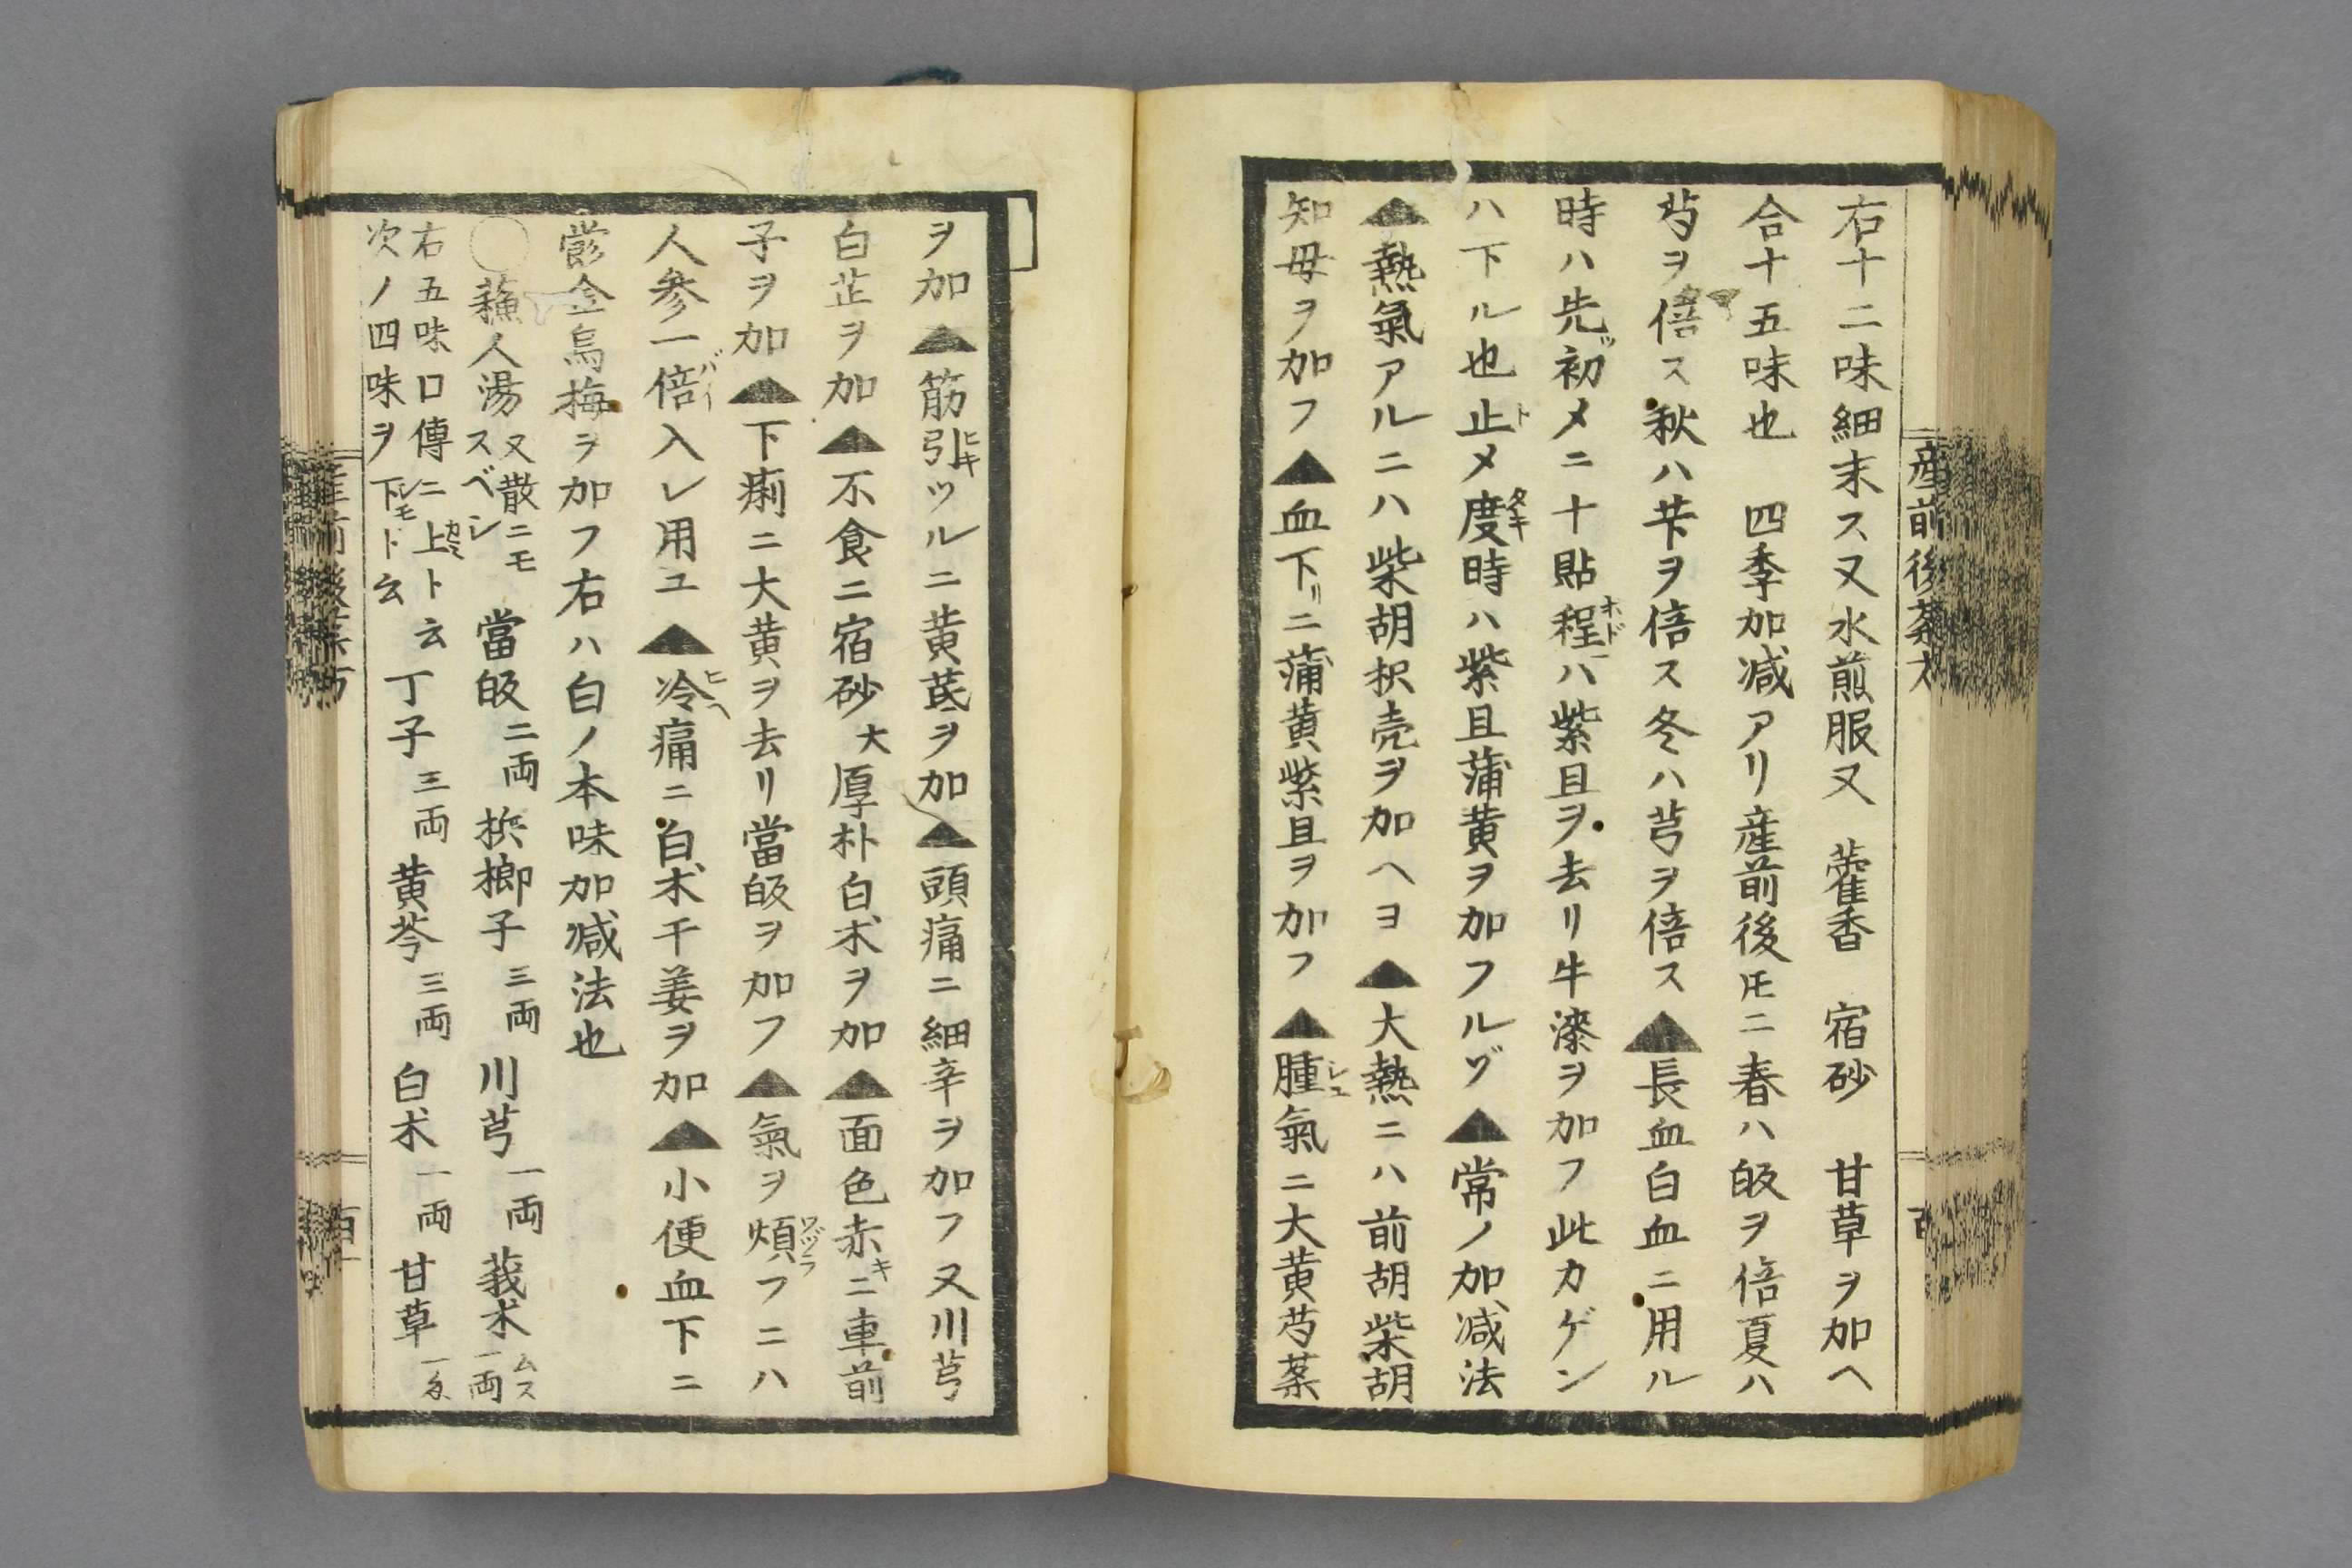 右十二味細末ス又水煎服又 藿香 宿砂 甘草ヲ加ヘ
合十五味也 四季加减アリ産前後𪜈ニ春ハ皈ヲ倍夏ハ
芍ヲ倍ス秋ハ芐ヲ倍ス冬ハ芎ヲ倍ス▲長血白血ニ用ル
時ハ先ッ初メニ十貼程ホドハ紫且ヲ去リ牛漆ヲ加フ此カゲン
ハ下ル也止トメ度タキ時ハ紫且蒲黄ヲ加フルゾ▲常ノ加减法
▲熱氣アルニハ柴胡枳壳ヲ加ヘヨ▲大熱ニハ前胡柴胡
知母ヲ加フ▲血下リニ蒲黄紫且ヲ加フ▲腫シユ氣ニ大黄芍薬
産前後薬方
ヲ加▲筋引ヒキツルニ黄芪ヲ加▲頭痛ニ細辛ヲ加フ又川芎
白芷ヲ加▲不食ニ宿砂大厚朴白朮ヲ加▲面色赤キニ車前
子ヲ加▲下痢ニ大黄ヲ去リ當皈ヲ加フ▲氣ヲ煩ワヅラフニハ
人参一倍バイ入レ用ユ▲冷ヒヘ痛ニ白朮干姜ヲ加▲小便血下ニ
金烏梅ヲ加フ右ハ白ノ本味加减法也
○蘓人湯 又散ニモスベシ 當皈二両 梹榔子三両 川芎一両 莪朮ムス一両
右五味口傳ニ上カミト云
次ノ四味ヲ下シモト云 丁子三両 黄芩三両 白朮一両 甘草
産前後薬方